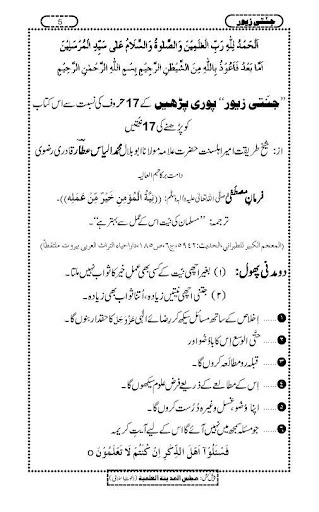 جنّتی زیور
5
اَلْحَمْدُ لِلّٰهِ رَبِّ الْعٰلَمِيْنَ وَالصَّلٰوةُ وَالسَّلَامُ عَلٰى سَيِّدِ الْمُرْسَلِيْنَ
اَمَّا بَعْدُ فَاَعُوْذُ بِاللّٰهِ مِنَ الشَّيْطٰنِ الرَّجِيْمِ بِسْمِ اللّٰهِ الرَّحْمٰنِ الرَّحِيْمِ
”جنّتی زیور پوری پڑھیں“ کے 17 حروف کی نسبت سے اس کتاب
کو پڑھنے کی 17 نیتیں
از: شیخ طریقت امیر اہلسنت حضرت علامہ مولانا ابو بلال محمد الیاس عطار قادری رضوی
دامت برکاتہم العالیہ
فرمانِ مصطفٰی صلی اللہ تعالیٰ علیہ واٰلہ وسلم: ((نِيَّةُ الْمُؤْمِنِ خَيْرٌ مِّنْ عَمَلِهٖ))۔
ترجمہ: ”مسلمان کی نیت اس کے عمل سے بہتر ہے“۔
(المعجم الکبیر للطبرانی، الحدیث: ۵۹۴۲، ج۶، ص۱۸۵، داراحیاء التراث العربی بیروت ملتقطاً)
دو مدنی پھول: (۱) بغیر اچھی نیت کے کسی بھی عمل خیر کا ثواب نہیں ملتا۔
(۲) جتنی اچھی نیتیں زیادہ، اُتنا ثواب بھی زیادہ۔
۱ ...... اخلاص کے ساتھ مسائل سیکھ کر رضائے الٰہی عزوجل کا حقدار بنوں گا۔
۲ ...... حتَّی الوسع اس کا باوُضو اور
۳ ...... قبلہ رو مطالعہ کروں گا۔
۴ ...... اِس کے مطالعے کے ذریعے فرض علوم سیکھوں گا۔
۵ ...... اپنا وضو، غسل وغیرہ دُرست کروں گا۔
۶ ...... جو مسئلہ سمجھ میں نہیں آئے گا اس کے لیے آیتِ کریمہ
فَسْـَٔلُوْۤا اَهْلَ الذِّكْرِ اِنْ كُنْتُمْ لَا تَعْلَمُوْنَ o
پیش کش: مجلس المدینة العلمیة (دعوتِ اسلامی)